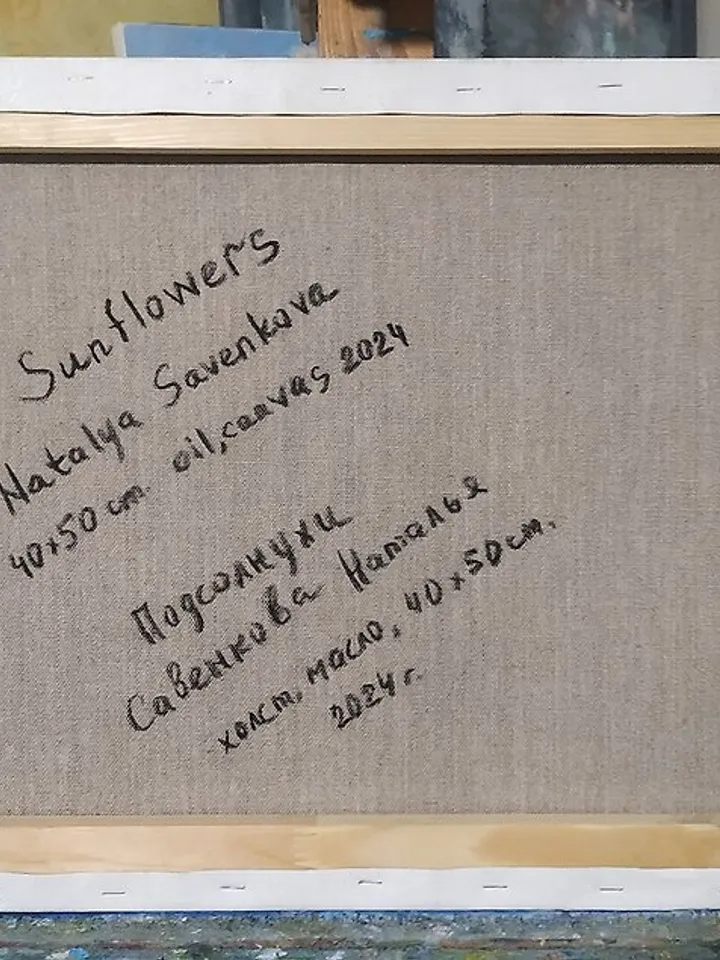 Sunflowers
Natalya Savenkova
40x50 cm. oil, canvas 2024
Подсолнухи
Савенкова Наталья
холст, масло, 40x50 см.
2024 г.